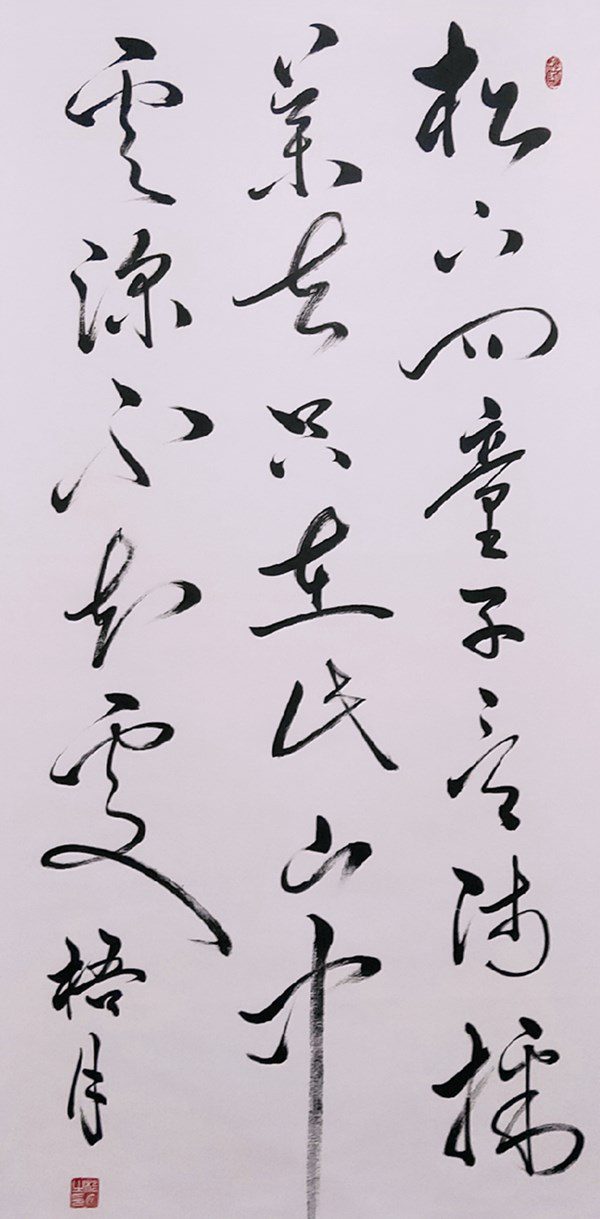 松下问童子言师採
药去只在此山中
云深不知处 梧月